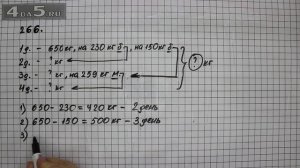 4da5.ru
266.
1д. - 650кг, на 230кг б, на 150кг б
2д. - ? кг
3д. - ? кг, на 259кг м
4д. - ? кг
? кг
1) 650-230=420кг - 2 день
2) 650-150=500кг - 3 день
3)